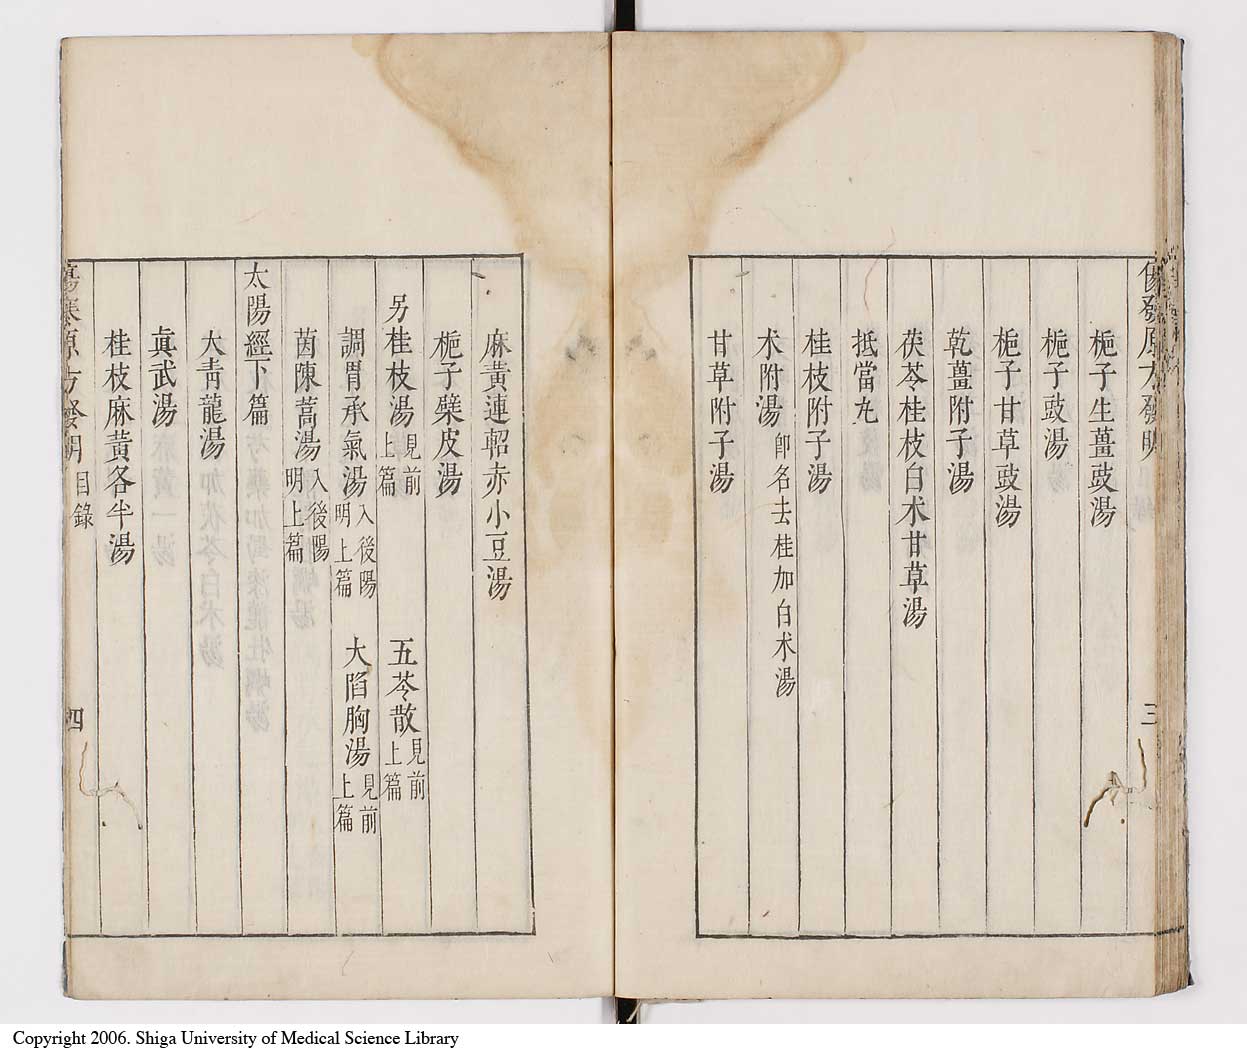 梔子生薑豉湯
梔子豉湯
梔子甘草豉湯
乾薑附子湯
茯苓桂枝白术甘草湯
抵當丸
桂枝附子湯
术附湯 卽名去桂加白术湯
甘草附子湯
三
麻黃連軺赤小豆湯
梔子蘗皮湯
另桂枝湯 見前上篇 五苓散 見前上篇
調胃承氣湯 入後陽明上篇 大陷胸湯 見前上篇
茵陳蒿湯 入後陽明上篇
太陽經下篇
大靑龍湯
眞武湯
桂枝麻黃各半湯
傷寒原方發明 目錄 四
Copyright 2006. Shiga University of Medical Science Library